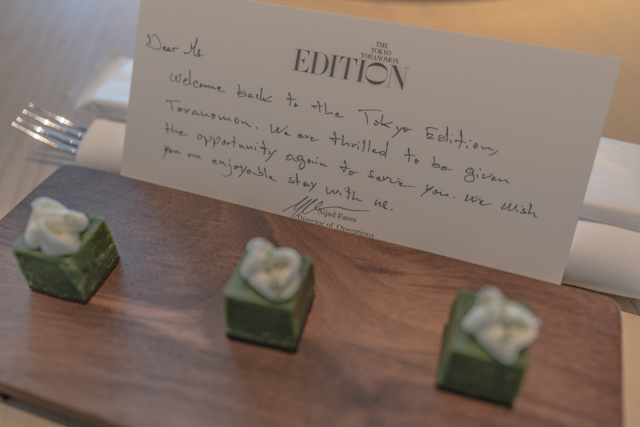 THE
TOKYO
TORANOMON
EDITION
Dear Ms
Welcome back to the Tokyo Edition,
Toranomon. We are thrilled to be given
the opportunity again to serve you. We wish
you an enjoyable stay with us.
Nijad Fares
Director of Operations